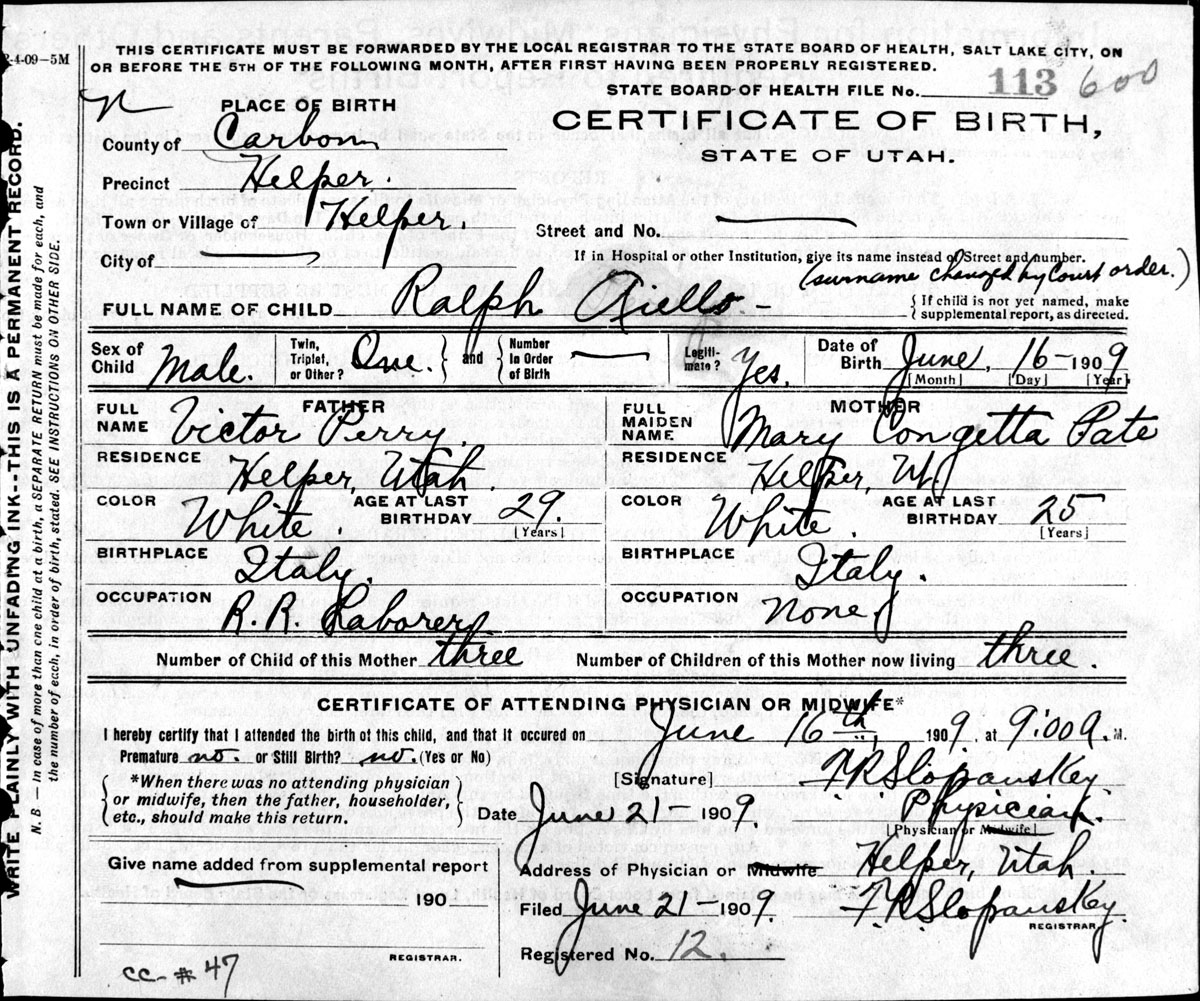 THIS CERTIFICATE MUST BE FORWARDED BY THE LOCAL REGISTRAR TO THE STATE BOARD OF HEALTH, SALT LAKE CITY, ON
2-4-09-5M
OR BEFORE THE 5TH OF THE FOLLOWING MONTH, AFTER FIRST HAVING BEEN PROPERLY REGISTERED.
STATE BOARD OF HEALTH FILE No. 113 600
PLACE OF BIRTH
CERTIFICATE OF BIRTH,
County of Carbon
STATE OF UTAH.
Precinct Helper.
Town or Village of Helper.
Street and No. —
City of —
If in Hospital or other Institution, give its name instead of Street and number.
(surname changed by Court order.)
FULL NAME OF CHILD Ralph Aiello -
{ If child is not yet named, make
supplemental report, as directed.
Sex of Child Male. Twin, Triplet, or Other? One. } and { Number In Order of Birth — Legiti-mate? Yes. Date of Birth June, 16 - 1909
[Month] [Day] [Year]
FATHER
FULL NAME Victor Perry.
RESIDENCE Helper, Utah.
COLOR White. AGE AT LAST BIRTHDAY 29. [Years]
BIRTHPLACE Italy.
OCCUPATION R. R. Laborer.
MOTHER
FULL MAIDEN NAME Mary Congetta Pate
RESIDENCE Helper, U.
COLOR White. AGE AT LAST BIRTHDAY 25 [Years]
BIRTHPLACE Italy.
OCCUPATION None
Number of Child of this Mother three Number of Children of this Mother now living three.
CERTIFICATE OF ATTENDING PHYSICIAN OR MIDWIFE*
I hereby certify that I attended the birth of this child, and that it occured on June 16th 1909. at 9:00 a. M.
Premature no. or Still Birth? no. (Yes or No)
[Signature] F. R. Slopanskey
{ *When there was no attending physician
or midwife, then the father, householder,
etc., should make this return. }
Date June 21 - 1909
Physician.
[Physician or Midwife]
Give name added from supplemental report
Address of Physician or Midwife Helper, Utah.
190
Filed June 21 - 1909. F. R. Slopanskey.
REGISTRAR.
Registered No. 12.
REGISTRAR.
CC- # 47
WRITE PLAINLY WITH UNFADING INK--THIS IS A PERMANENT RECORD.
N. B — In case of more than one child at a birth, a SEPARATE RETURN must be made for each, and
the number of each, in order of birth, stated. SEE INSTRUCTIONS ON OTHER SIDE.